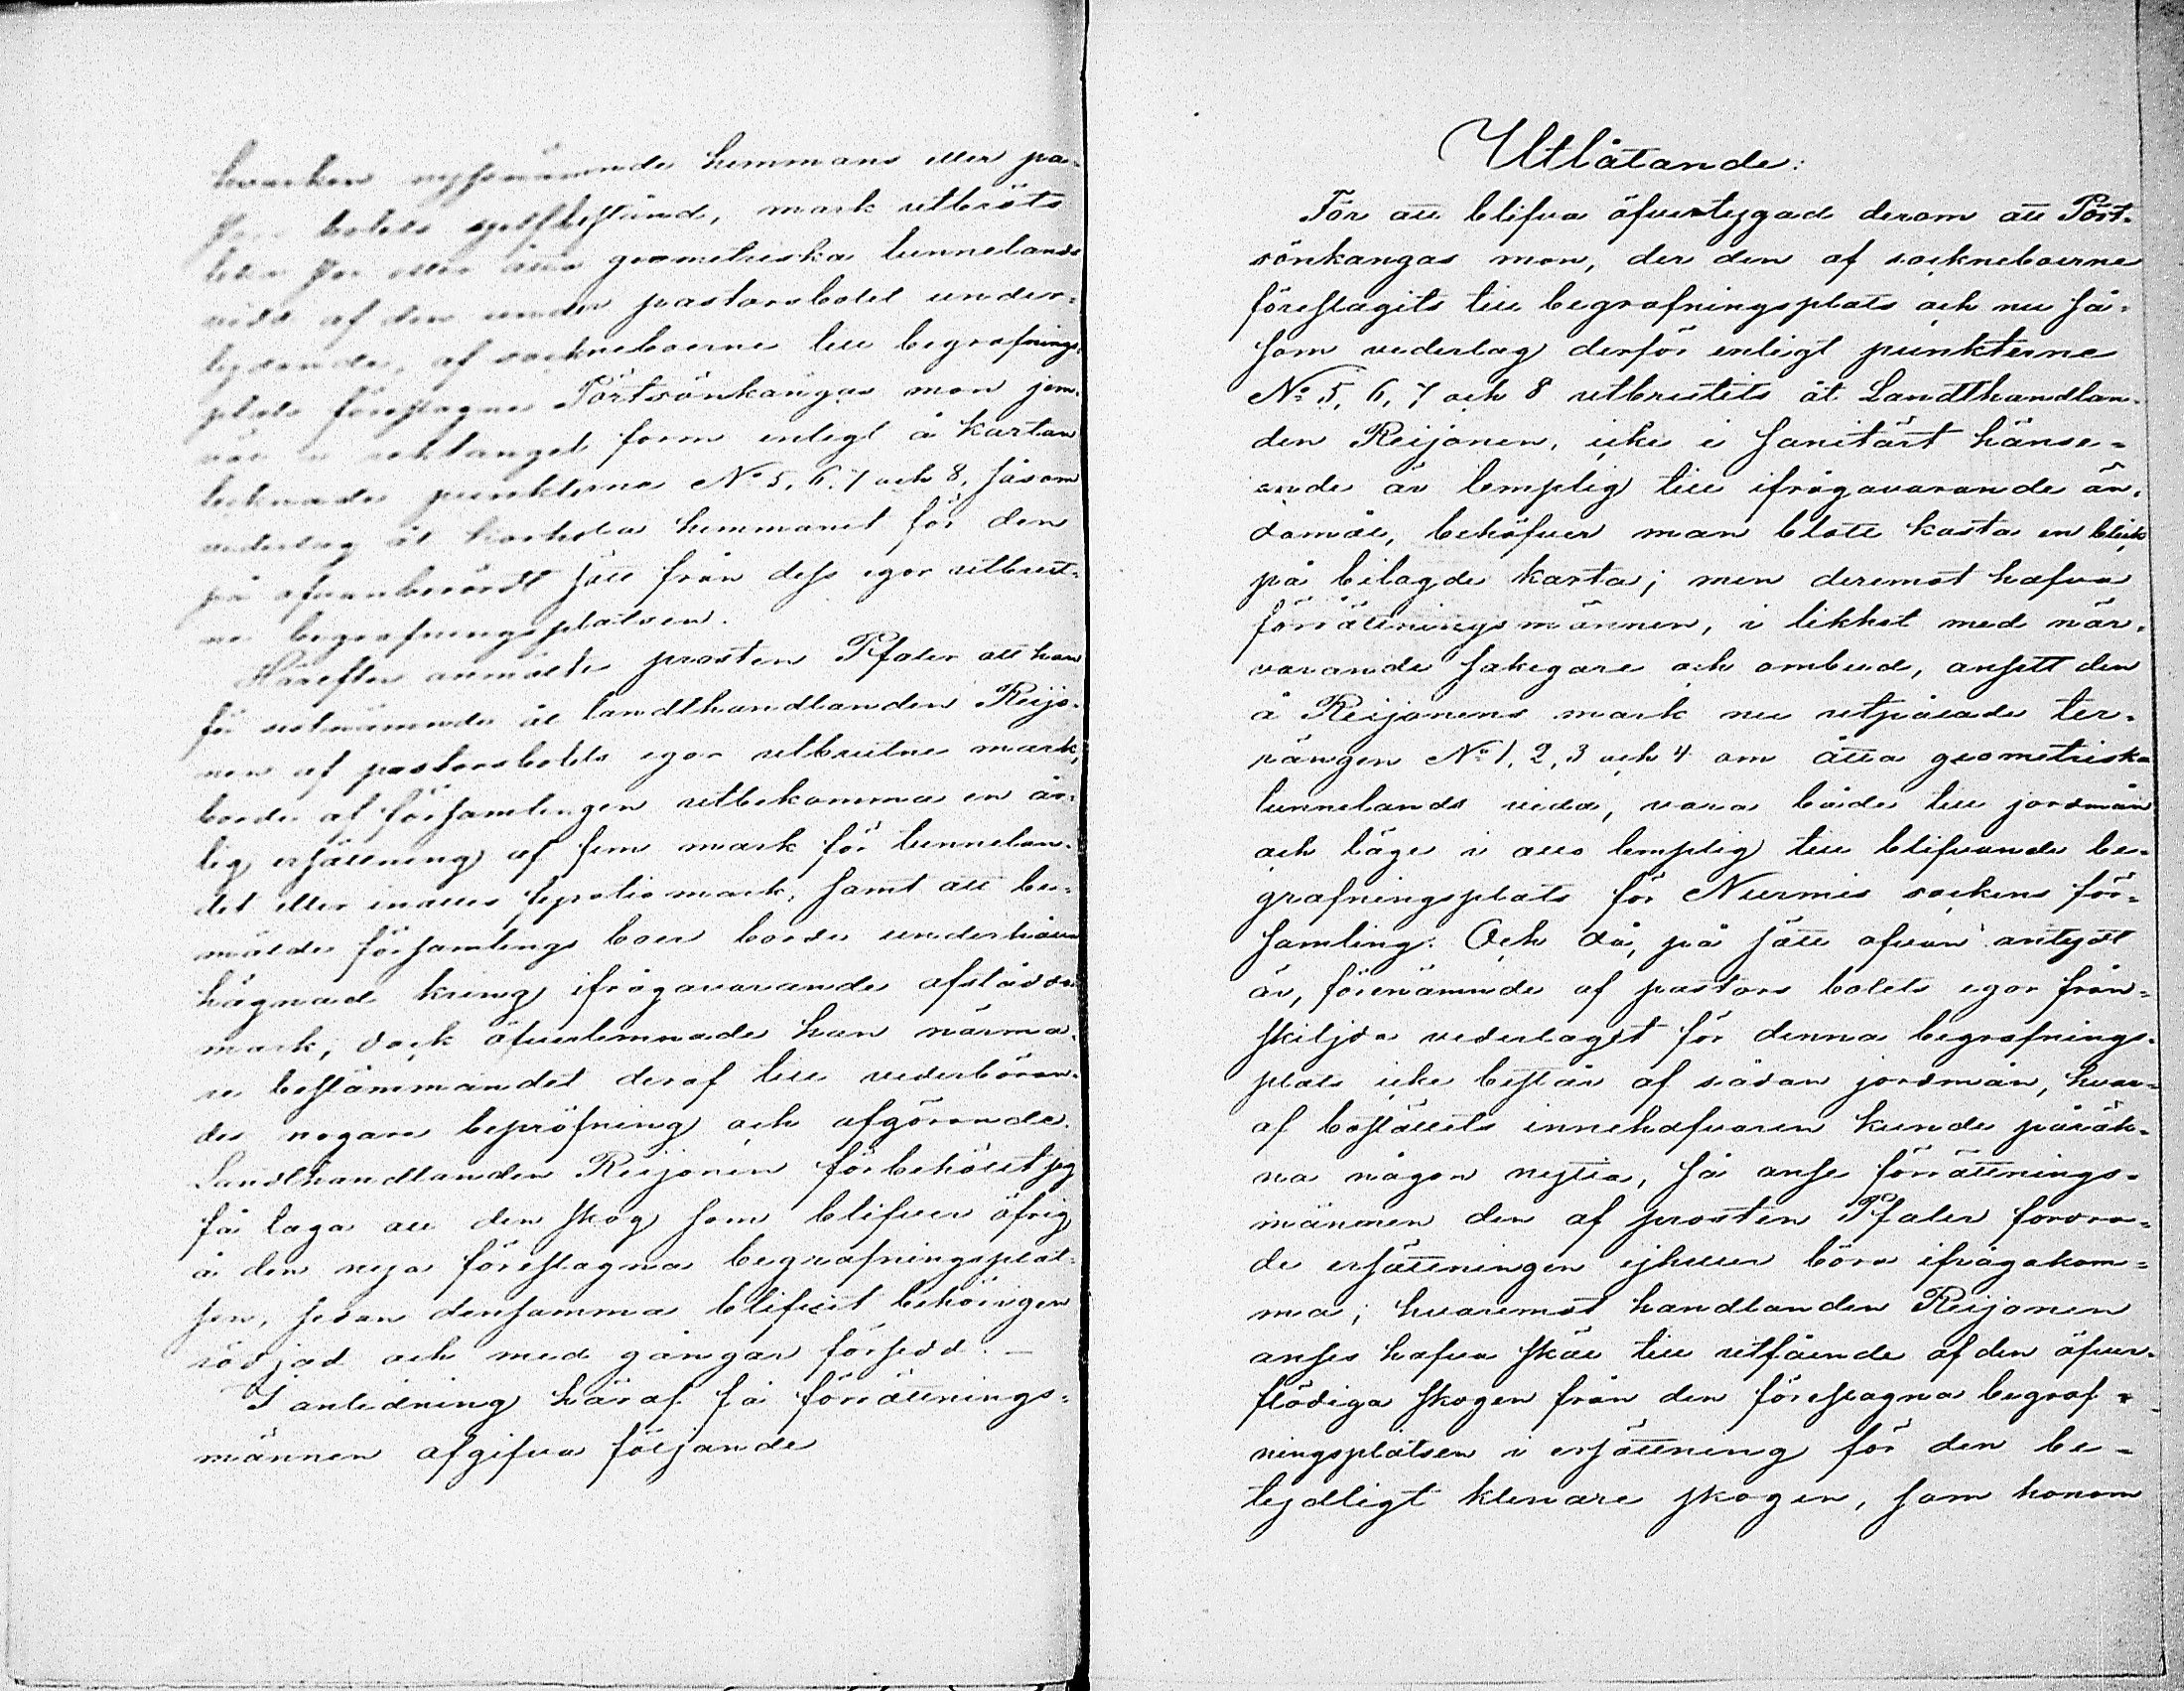 hvarken nyssnämnde hemmans eller pa-
bolets sjelfbestånd, mark utbröts
eller åtta geometriska tunnelands
vidd af den under pastorsbolet under-
lydande, af sockneboerne till begrafnings-
plats föreslagne Pörtsönkangas mon jem-
väl i rektangel form enligt å kartan
tecknade punkterne No 5, 6, 7 och 8, såsom
vederlag åt hemmanet för den
på ofvanberördt sätt från dess egor utbrut-
ne begrafningsplatsen.
Härefter anmälte prosten Pfaler att han
för ustnämnde åt landthandlanden Reijo-
nen af pastorsbolets egor utbrutne mark,
borde af församlingen utbekomma en år-
lig ersättning af fem mark för tunnelan-
det eller inalles fyratio mark, samt att be-
mälde församlings boer borde underhålla
hägnad kring ifrågavarande afstådda
mark; dock öfverlemnade han närma-
re bestämmandet deraf till vederböran-
des nogare bepröfning och afgörande.
Landthandlanden Reijonen förbehöllt sig
få taga all den skog som blifver öfrig
å den nya föreslagna begrafningsplat-
sen, sedan densamma blifvit behörigen
rödjad och med gångar försedd. —
I anledning häraf få förrättnings-
männen afgifva följande
Utlåtande:
För att blifva öfvertygad derom att Pört-
sönkangas mon, der den af sockneboerne
föreslagits till begrafningsplats och nu så-
som vederlag derför enligt punkterne
No 5, 6, 7 och 8 utbrutits åt Landthandlan-
den Reijonen, icke i sanitärt hänse-
ende är lemplig till ifrågavarande än-
damål, behöfver man blott kasta en blick
på bilagde karta; men deremot hafva
förrättningsmännen, i likhet med när-
varande sakegare och ombud, ansett den
å Reijonens mark nu utpålade ter-
rängen No 1, 2, 3 och 4 om åtta geometriska
tunnelands vidd, vara både till jordmån
och läge i allo lemplig till blifvande be-
grafningsplats för Nurmis sockens för-
samling. Och då, på sätt ofvan antydt
är, förenämnde af pastors bolets egor från-
skiljda vederlaget för denna begrafnings-
plats icke består af sådan jordmån, hvar-
af boställets innehafvaren kunde påräk-
na någon nytta, så anse förrättnings-
männen den af prosten Pfaler fordra-
de ersättningen ejheller böra ifrågakom-
ma; hvaremot handlanden Reijonen
anses hafva skäl till utfående af den öfver-
flödiga skogen från den föreslagna begraf-
ningsplatsen i ersättning för den be-
tydligt klenare skogen, som honom